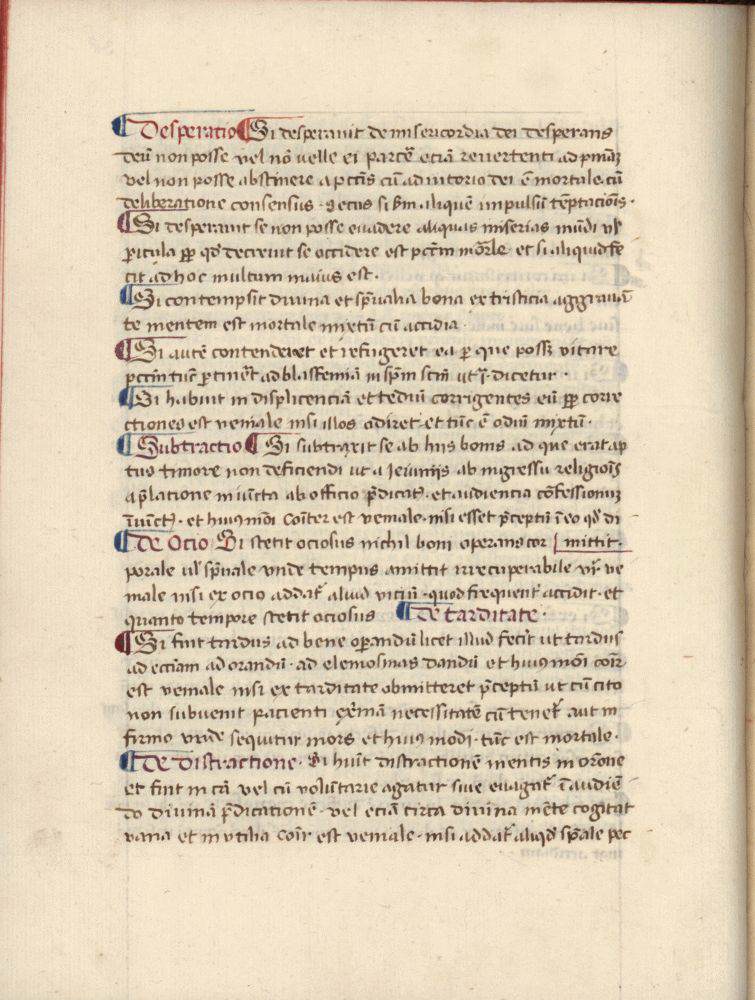 Desperatio Si desperauit de misericordia dei desperans
deū non posse vel nō velle ei parcēr eciā reuertenti ad pnīaȝ
vel non posse abstinere a pctīs cū adiutorio dei ē mortale cū
deliberatione consensus · secus si scdm aliquē impulsū tēptacioīs ·
Si desperauit se non posse euadere aliquas miserias mūdi vl'
pericula pp qd' decreuit se occidere est pctm mōrle · et si aliquid fe
cit ad hoc multum maius est ·
Si contempsit diuina et spūalia bona ex tristicia aggraua
te mentem est mortale mixtū cū accidia ·
Si autē contenderet et refugeret ea per que possȝ vitare
pctm tūc ptinet ad blasfemiā in spm scm ut dicetur ·
Si habuit in displicenciā et tediū corrigentes eū pp corre
ctiones est veniale nisi illos odiret et tūc ē odiū mixtū ·
Subtractio Si subtraxit se ab hiis bonis ad que erat ap
tus timore non deficiendi ut a ieiuniis ab ingressu religiois
a plātione iniūcta ab officio pdicat' · et audiencia cōfessionuȝ
iniūct' · et huiusmōi coiter est veniale · nisi esset pceptū i eo qd' di
De Ocio Si stetit ociosus nichil boni operans cor mittit ·
porale ul' spūale vnde tempus amittit irrecuperabile vr̄ ve
niale nisi ex ocio addat' aliud viciū · quod frequent' accidit · et
quanto tempore stetit ociosus De tarditate ·
Si fuit tardus ad bene opandū licet illud fecit ut tardus
ad ecciam ad orandū · ad elemosinas dandū et huiusmōi coir̄
est veniale nisi ex tarditate obmitteret pceptū ut cū cito
non subuenit pacienti exmā necessitatē cū tenet' aut in
firmo vnde sequitur mors et huius modi · tūc est mortale ·
De distractione · Si huit distractionē mentis in orōne
et fuit in cā vel cū volūtarie agatur siue euagat' i audiē
do diuinā pdicationē · vel eciā circa diuina mēte cogitat
vana et inutilia coir̄ est veniale · nisi addat' aliqd' spāle pec